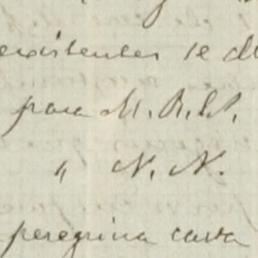 existentes se d
para M. R. S.
" N. N.
peregrina casta